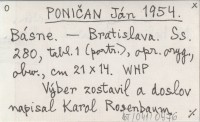 PONIČAN Ján 1954.
Básne. — Bratislava. Ss.
280, tabl. 1 (portr.), opr. oryg.,
obw., cm 21 x 14. WHP
Výber zostavil a doslov
napísal Karol Rosenbaum.